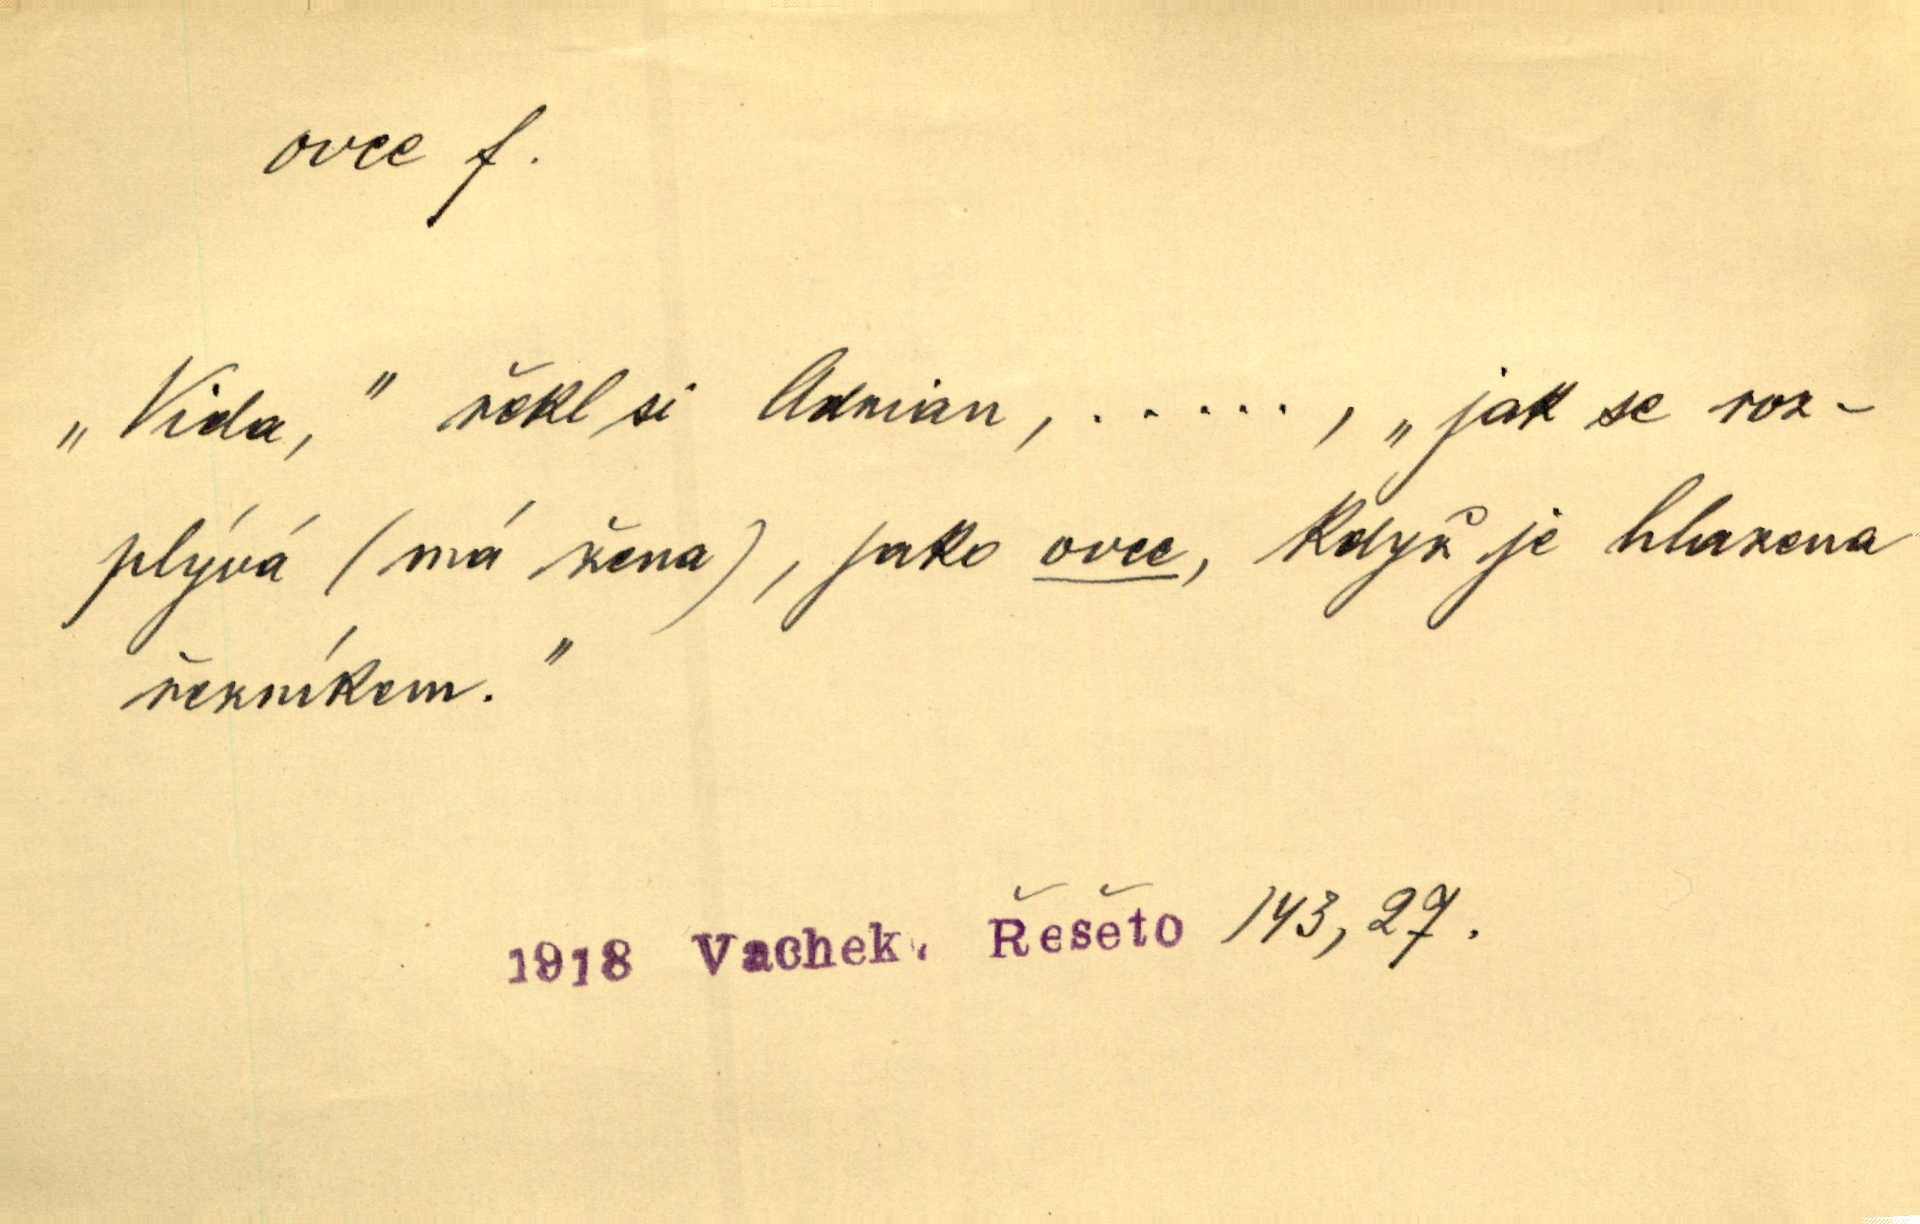 ovce f.
„Vida,” řekl si Adrian, . . . . . . , „jak se roz-
plývá (má žena), jako ovce, když je hlazena
řezníkem.”
1918 Vachek. Řešeto 143,27.